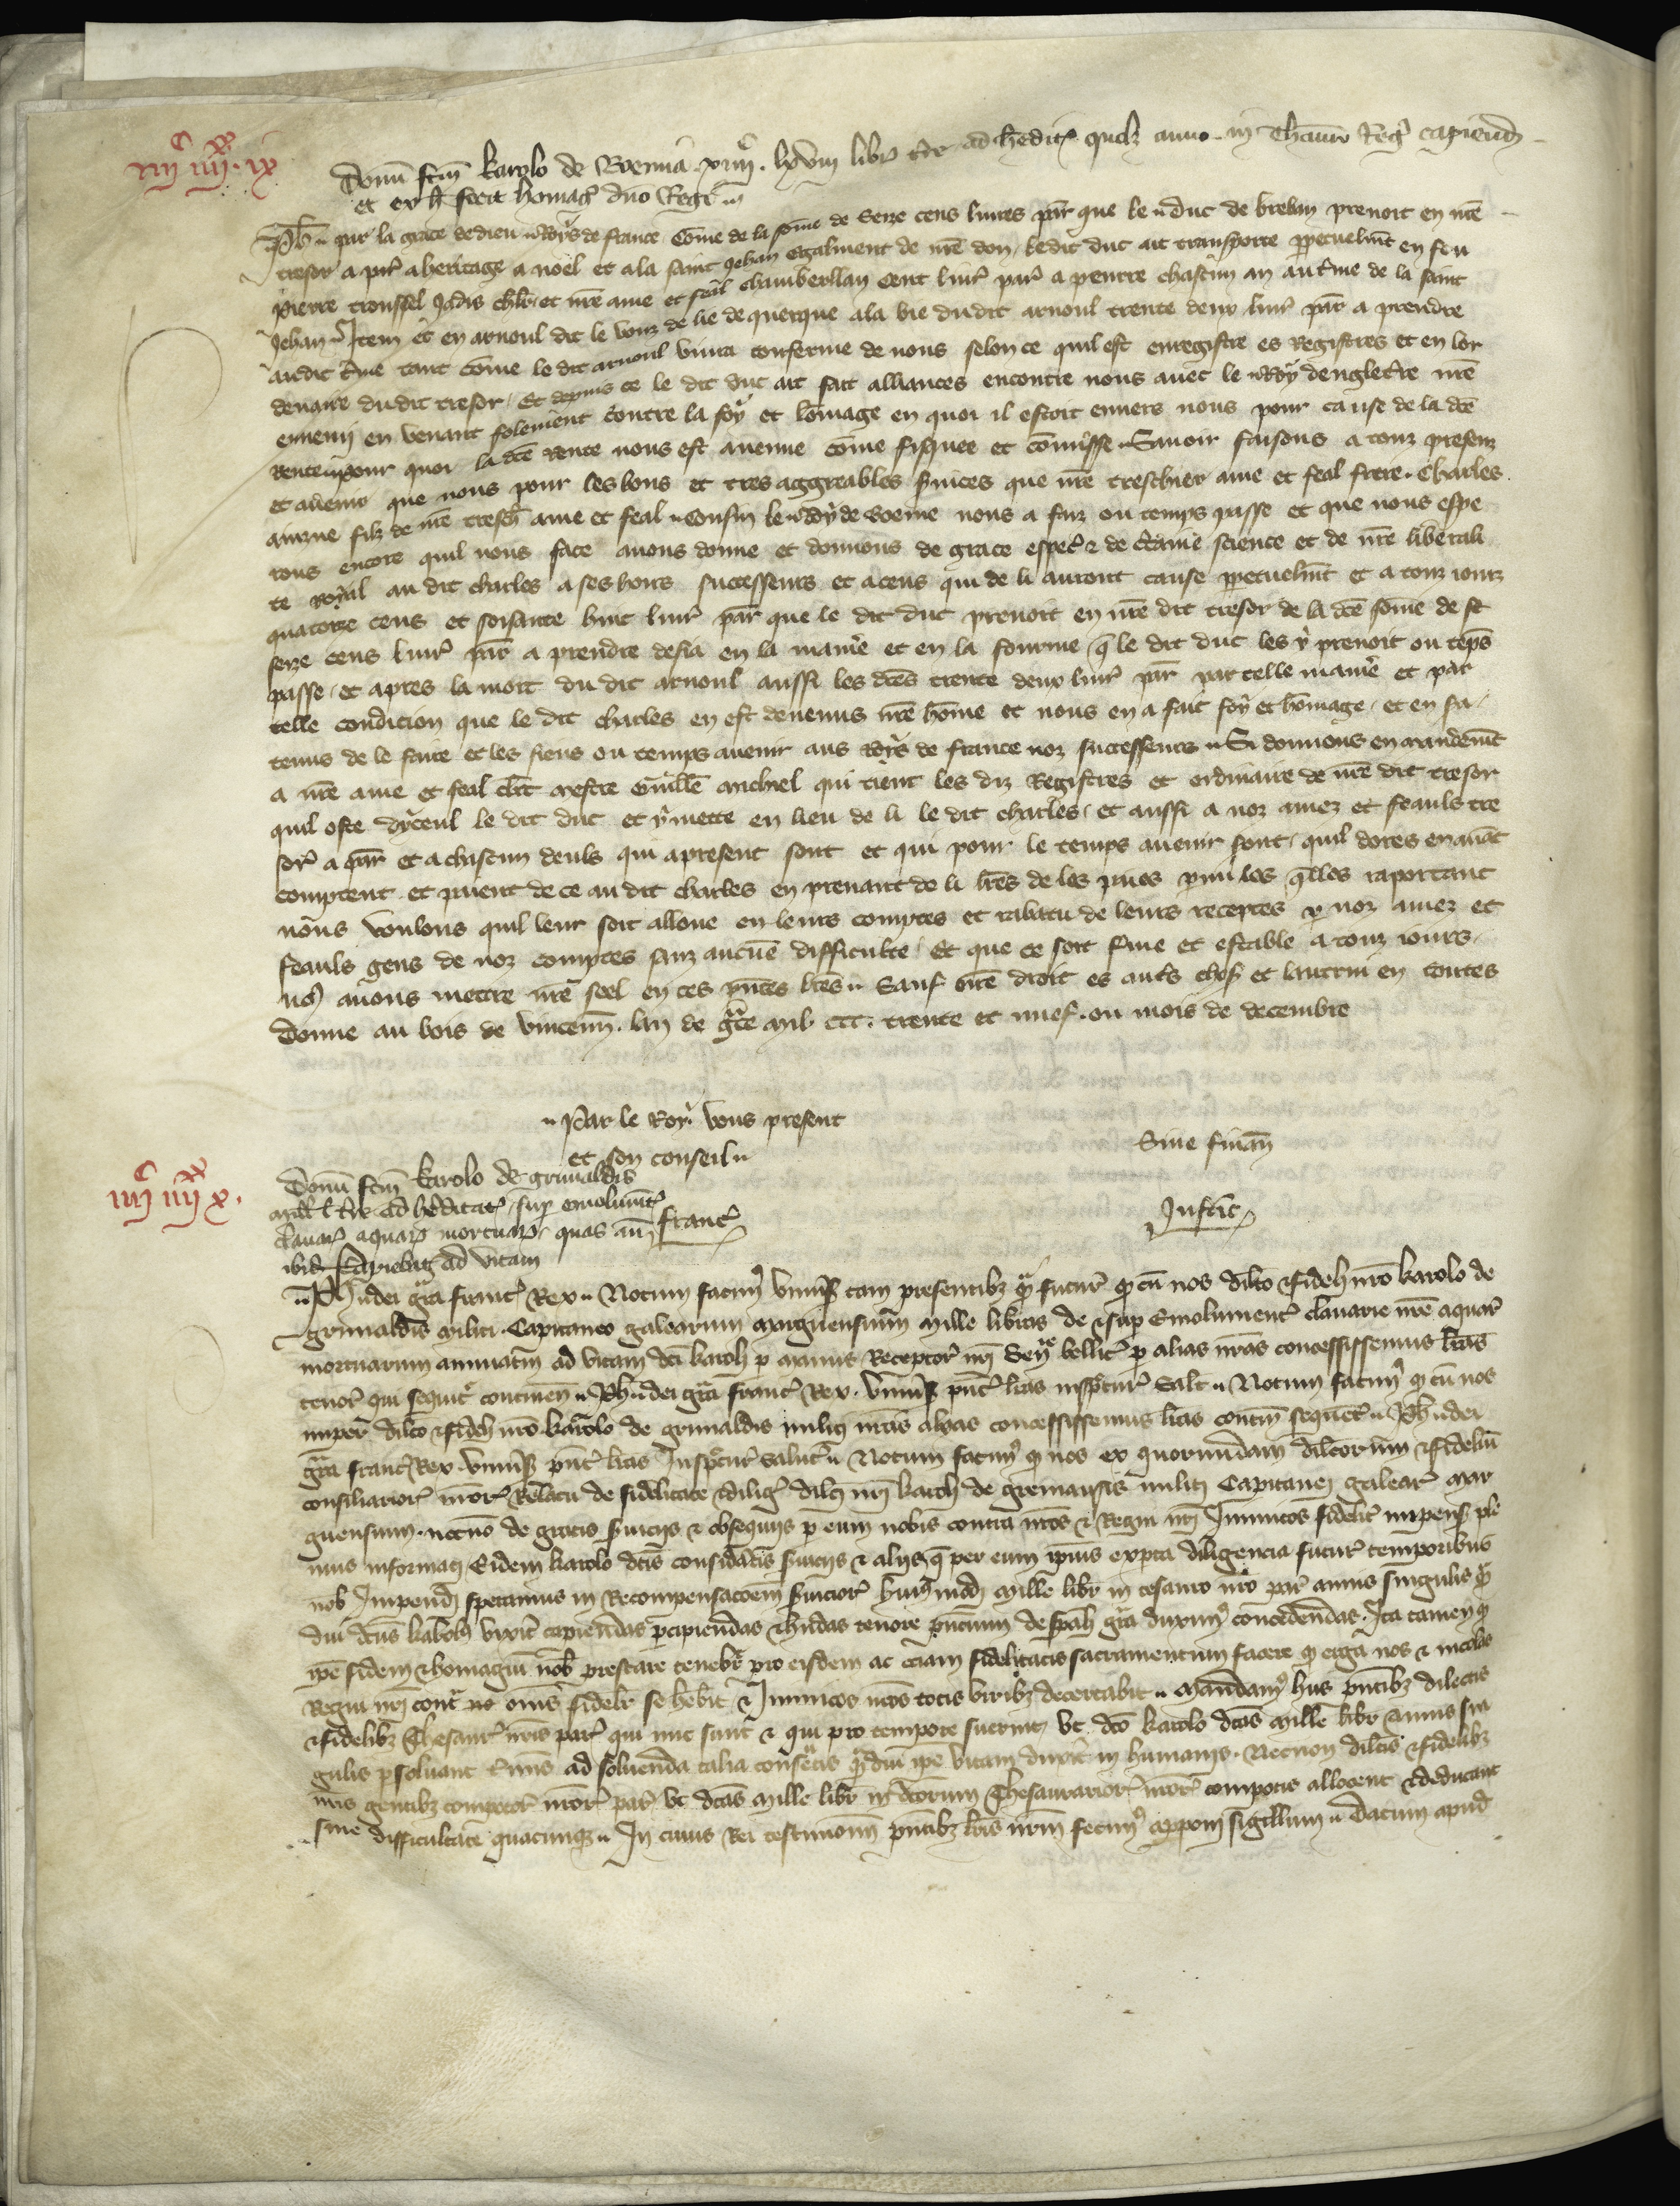 iiiiᶜ iiiiˣˣ ix
Donū fcm̄ karolo de Boemia xiiiiᶜ. lxviii libr̄ t̄re ad hedit̄ qualz anno in Thauro Reg̾ capiend
et ex h̄ fecit homag̾ dn̄o Regi
Ph̄ par la grace de dieu Roys de france Cōme de la sōme de Seze cens liures par̄ que le duc de breban prenoit en n̄re
tresor a par̄ a heritage a noel et a la saint Jehan egalment de n̄re don, ledit duc ait transporte ꝑpetuelm̄t en feu
pierre troussel Jadis ch̄lr et n̄re ame et feal chamberllan Cent liur̄ par̄ a prentre chascun an au t̄me de la saint
Jehan Item et en arnoul dit le vouz de lie de querque a la vie dudit arnoul trente deux liur̄ par̄ a prendre
audit t̄me tant cōme le dit arnoul viura conferme de nous selon ce quil est enregistre es Registres et en lor
denaire du dit tresor, Et depuis ce le dit duc ait fait alliances encontre nous auec le Roy dengleterre n̄re
ennemi en venant folement contre la foy et lōmage en quoi il estoit enuers nous pour cause de la dc̄e
Rente pour quoi la dc̄e rente nous est auenue cōme fisquee et cōmisse Sauoir faisons a touz presenz
et auenir que nous pour les bons et tres aggreables s̄uices que n̄re treschier ame et feal frere Charles
ainzne filz de n̄re tresch̄ ame et feal Cousin le Roy de Boeme nous a faiz ou temps passe et que nous espe
rons encore quil nous face auons donne et donnons de grace espec̄ et de c̄taine science et de n̄re liberali
te royal au dit charles a ses hoirs successeurs et a ceus qui de li auront cause ꝑpetuelm̄t et a touz iourz
quatorze cens et soisante huit liur̄ par̄ que le dit duc prenoit en n̄re dit tresor de la dc̄e sōme de
seize cens liur̄ par̄ a prendre desia en la manie̾ et en la fourme q̄ le dit duc les y prenoit ou tēps
passe, et apres la mort du dit arnoul aussi les dc̄es trente deux liur̄ par̄ par telle manie̾ et par
telle condicion que le dit charles en est deuenus n̄re hōme et nous en a fait foy et hōmage, et en sa
tenus de le faire et les siens ou temps auenir aus Roys de france noz successeurs Si donnons en mandem̄t
a n̄re ame et feal cl̄rc mestre Guill̄e michiel qui tient les diz Registres et ordinaire de n̄re dit tresor
quil oste dyceul le dit duc et y mette en lieu de li le dit charles, et aussi a noz amez et feauls tre
sor̄ a par̄ et a chascun deuls qui apresent sont et qui pour le temps auenir sont, quil dores en auāt
comptent et paient de ce au dit charles en prenant de li l̄res de les paies parmi les q̄lles raportant
nous voulons quil leur soit alloue en leurs comptes et rabatu de leurs receptes ꝑ noz amez et
feauls gens de noz comptes sanz aucūe difficulte, Et que ce soit ferme et estable a touz iours,
n9 auons mettre n̄re seel en ces ꝑn̄tes l̄res Sauf n̄re droit es aut̾s chos̾ et lautrui en toutes
Donne au bois de vincenn̄. lan de gr̄ce mil. ccc. trente et nuef. ou mois de decembre
Par le Roy vous present
et son conseil
Sine finan̄
iiiiᶜ iiiiˣˣ x.
Donū fcm̄ karolo de grimaldis
mil̄ l t̄re ad hereditat̾, suꝑ emolumt̾
clauar̾ aquar̾ mortuar̾, quas an̄
ibid̄ capiebat ad vitam
franc̾
Justic̾
Ph̄ dei gr̄a franc̾ Rex Notum facim9 vniuers̾ tam presentibz q̄ futur̾ qd cū nos dilc̄o et fideli nr̄o karolo de
grimaldis militi Capitaneo galearum marguensium mille libras de et suꝑ Emolument̾ clauarie n̄re aquar̾
mortuarum annuatim ad vitam dc̄i karoli ꝑ manus Receptor̾ nr̄i Seny bellic̾ ꝑ alias nr̄as concessissemus l̄ras
tenor̾ qui sequit̾ continen̄ Ph̄ dei gr̄a franc̾ Rex. vniuers̾ pn̄t̾ l̄ras inspectur̾ Salt̄ Notum facim9 qd cū nos
nuper dilc̄o et fideli nr̄o karolo de grimaldis militi nr̄as alias concessissemus l̄ras contin̄ sequent̾ Ph̄ dei
gr̄a franc̾ Rex. vniuers̾ pn̄t̾ l̄ras Inspectur̾ Salut̾ Notum facim9 qd nos ex quorundam dilc̄orum et fideliū
consiliarior̾ nr̄or̾ Relatu de fidelitate et dilig̾ dilc̄i nr̄i karoli de gremansis militis Capitanei galear̾ mar
guensium. necnō de gratis s̄uiciis et obsequiis ꝑ eum nobis contra nr̄os et Regni nr̄i Inimicos fidelit̾ impens̾ ple
nius informati Eidem karolo dc̄is consideratis s̄uiciis et aliis q̄ per eum ipsius exꝑta diligencia futur̾ temporibus
nob̄ Impendi speramus in Recompensacōem s̄uicior̾ huiusmodi mille libr̄ in tesauro nr̄o par̄ annis singulis q̄
diu dc̄us karolus vixerit capiendas ꝑcipiendas et h̄ndas tenore pn̄cium de sp̄ali gr̄a duxim9 concedendas. Ita tamen qd
ip̄e fidem et homagiū nob̄ prestare tenebit̾ pro eisdem ac eciam fidelitatis sacramentum facere qd erga nos et incolas
Regni nr̄i cont̾ os omīs fidelit̾ se h̄ebit et Inimicos nr̄os totis viribz decertabit Mandam9 hiis pn̄tibz dilectis
et fidelibz Thesaur̾ nr̄is par̄ qui nūc sunt et qui pro tempore fuerint, vt dc̄o karolo dc̄as mille libr̄ annis sin
gulis ꝑsoluant t̄mis ad soluenda talia consuetis q̄mdiu ip̄e vitam duxit̾ in humanis. Necnon dilc̄is et fidelibz
nr̄is gentibz compotor̾ nr̄or̾ par̄ vt dc̄as mille libr̄ in dc̄orum Thesaurarior̾ nr̄or̾ compotis allocent et deducant
sine difficultate quacunqz In cuius Rei testimoniū pn̄tibz l̄ris nr̄m fecim9 apponi sigillum Datum apud